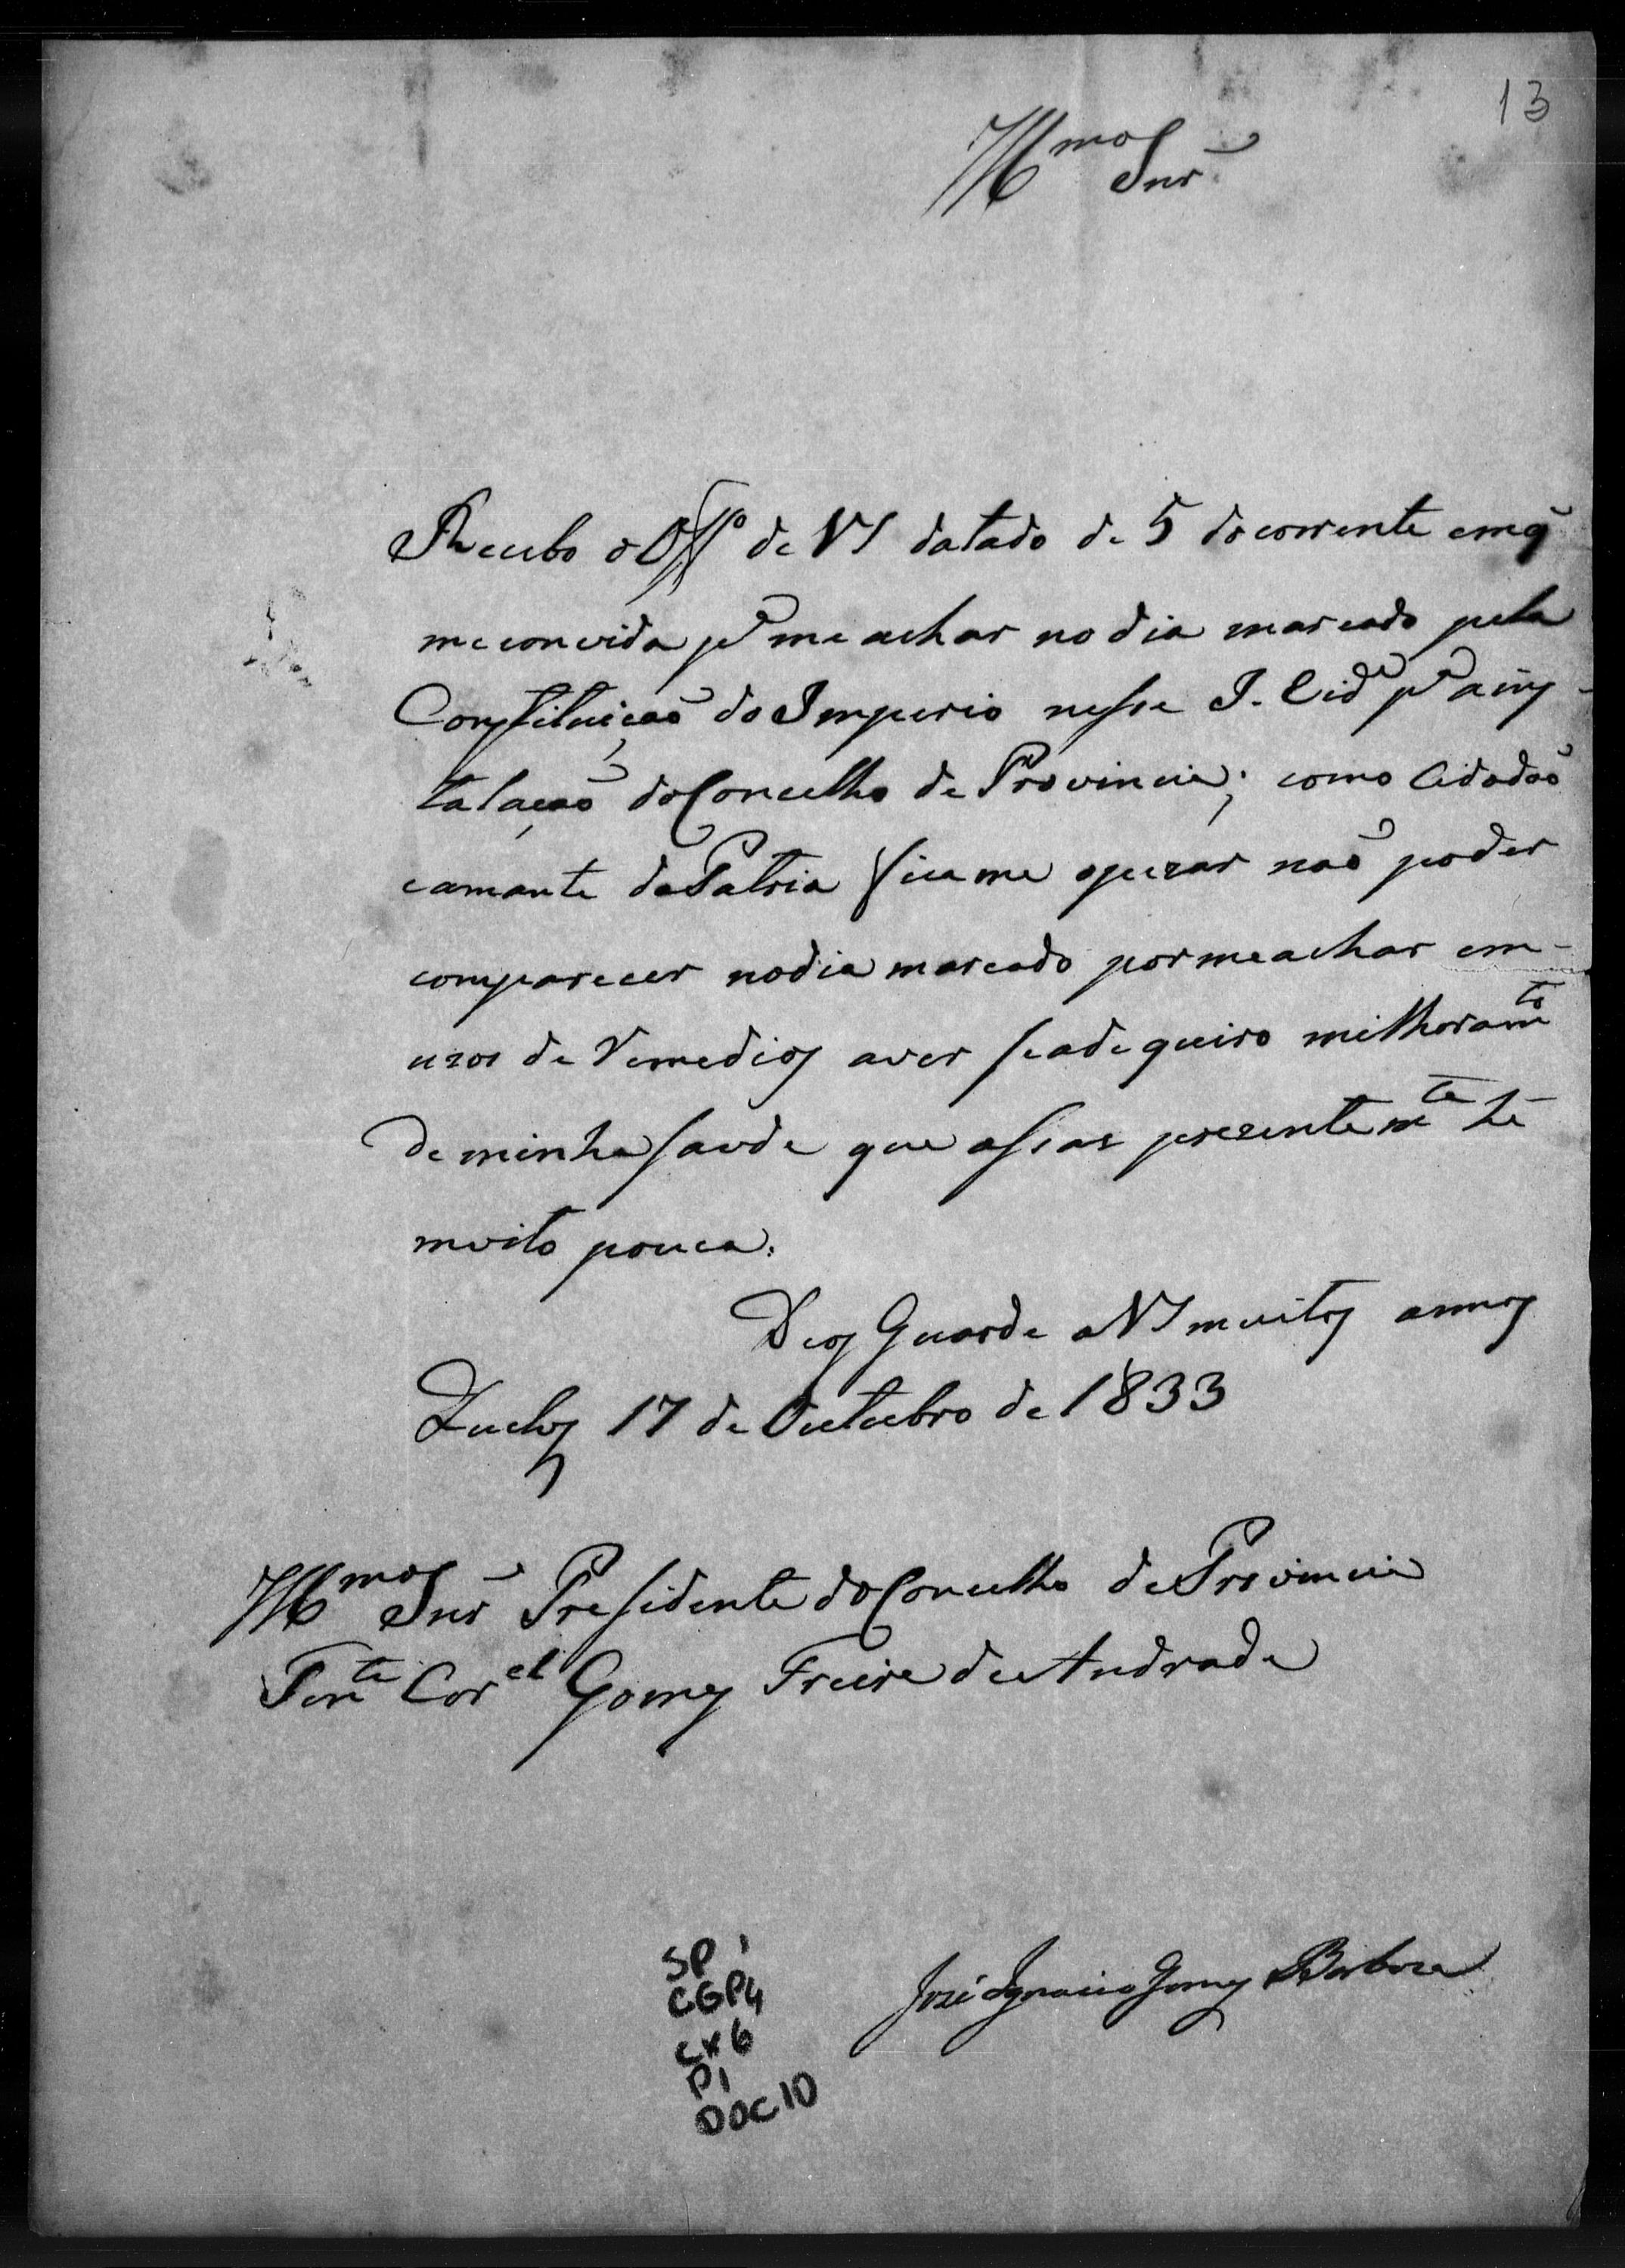 13
Illmo Snr
Recebo o Offo de VS datado de 5 do corrente em q̃
me convida pa me achar no dia marcado pela
Constituiçaõ do Imperio nessa I. Cide pa a ins-
talaçaõ do Concelho de Provincia; como Cidadaõ
e amante da Patria fica me o pezar naõ poder
comparecer no dia marcado por me achar em-
uzos de remedios a ver se adequiro milhoramto
de minha saude que assas prezentemte hé
muito pouca.
Deos Guarde a VS muitos annos
17 de Outubro de 1833
Illmo Snr Presidente do Concelho de Provincia
Tente Corel Gomes Freire de Andrade
José Ignacio Gomes Barboza
SP 1
CGP4
CX6
P1
DOC10